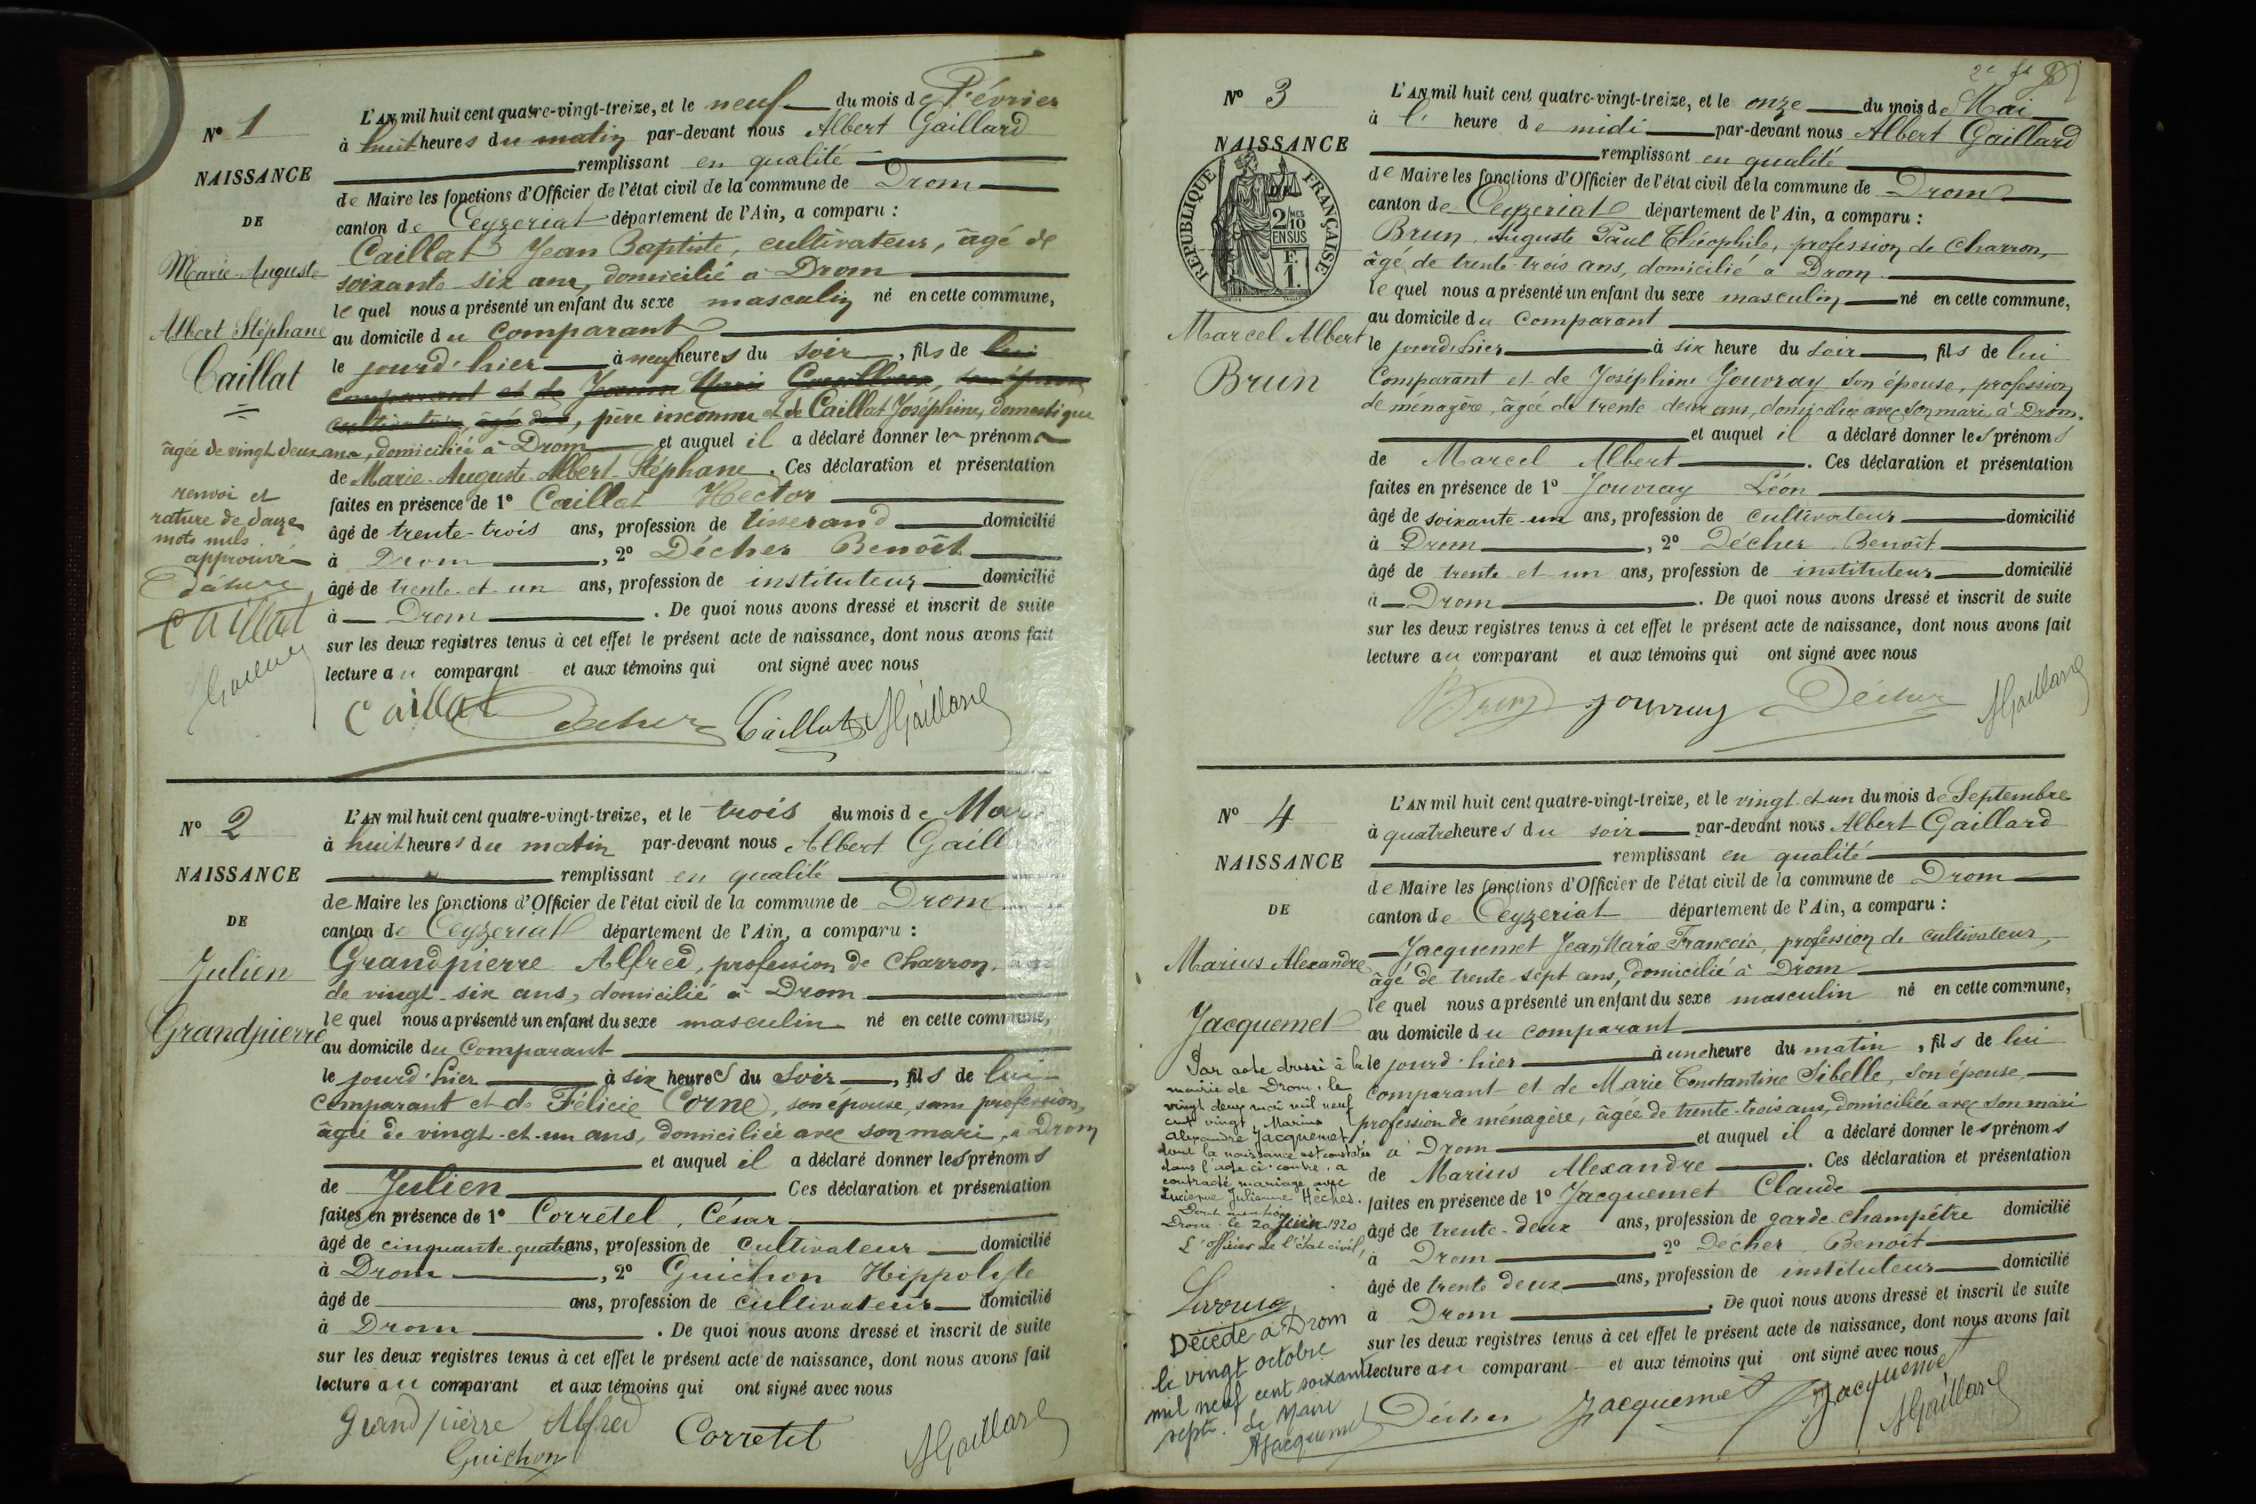 Nº 1
NAISSANCE
DE
Marie-Auguste
Albert Stéphane
Caillat
L'AN mil huit cent quatre-vingt-treize, et le neuf du mois de Février
à huit heures du matin par-devant nous Albert Gaillard
remplissant en qualité
de Maire les fonctions d'Officier de l'état civil de la commune de Drom
canton de Ceyzeriat département de l'Ain, a comparu :
Caillat Jean Baptiste, cultivateur, âgé de
soixante-six ans, domicilié à Drom
le quel nous a présenté un enfant du sexe masculin né en cette commune,
au domicile du comparant
le jourd'hier à neuf heures du soir, fils de lui
comparant et de Jeanne Marie
, père inconnu et de Caillat Joséphine, domestique
âgée de vingt deux ans, domiciliée à Drom et auquel il a déclaré donner les prénoms
de Marie-Auguste-Albert-Stéphane. Ces déclaration et présentation
faites en présence de 1º Caillat Hector
âgé de trente-trois ans, profession de tisserand domicilié
à Drom, 2º Décher Benoît
âgé de trente-et-un ans, profession de instituteur domicilié
à Drom. De quoi nous avons dressé et inscrit de suite
sur les deux registres tenus à cet effet le présent acte de naissance, dont nous avons fait
lecture au comparant et aux témoins qui ont signé avec nous
renvoi et
rature de douze
mots nuls
approuvé
Décher
Caillat
Caillat Décher Caillat AGaillard
Nº 2
NAISSANCE
DE
Julien
Grandpierre
L'AN mil huit cent quatre-vingt-treize, et le trois du mois de Mars
à huit heures du matin par-devant nous Albert Gaillard
remplissant en qualité
de Maire les fonctions d'Officier de l'état civil de la commune de Drom
canton de Ceyzeriat département de l'Ain, a comparu :
Grandpierre Alfred, profession de charron, âgé
de vingt-six ans, domicilié à Drom
le quel nous a présenté un enfant du sexe masculin né en cette commune,
au domicile du comparant
le jourd'hier à six heures du soir, fils de lui
comparant et de Félicie Corne, son épouse, sans profession,
âgée de vingt-et-un ans, domiciliée avec son mari, à Drom
et auquel il a déclaré donner les prénoms
de Julien Ces déclaration et présentation
faites en présence de 1º Corretel, César
âgé de cinquante quatre ans, profession de cultivateur domicilié
à Drom, 2º Guichon Hippolyte
âgé de ans, profession de cultivateur domicilié
à Drom. De quoi nous avons dressé et inscrit de suite
sur les deux registres tenus à cet effet le présent acte de naissance, dont nous avons fait
lecture au comparant et aux témoins qui ont signé avec nous
Grandpierre Alfred Corretel AGaillard
Guichon
Nº 3
NAISSANCE
RÉPUBLIQUE FRANÇAISE
2/10 EN SUS
F. 1.
Marcel Albert
Brun
L'AN mil huit cent quatre-vingt-treize, et le onze du mois de Mai
à l' heure de midi par-devant nous Albert Gaillard
remplissant en qualité
de Maire les fonctions d'Officier de l'état civil de la commune de Drom
canton de Ceyzeriat département de l'Ain, a comparu :
Brun, Auguste Paul Théophile, profession de charron,
âgé de trente-trois ans, domicilié à Drom
le quel nous a présenté un enfant du sexe masculin né en cette commune,
au domicile du comparant
le jourd'hier à six heure du soir, fils de lui
comparant et de Joséphine Jouvray son épouse, profession
de ménagère, âgée de trente deux ans, domiciliée avec son mari à Drom.
et auquel il a déclaré donner les prénoms
de Marcel Albert. Ces déclaration et présentation
faites en présence de 1º Jouvray Léon
âgé de soixante-un ans, profession de cultivateur domicilié
à Drom, 2º Décher Benoît
âgé de trente et un ans, profession de instituteur domicilié
à Drom. De quoi nous avons dressé et inscrit de suite
sur les deux registres tenus à cet effet le présent acte de naissance, dont nous avons fait
lecture au comparant et aux témoins qui ont signé avec nous
Brun Jouvray Décher AGaillard
Nº 4
NAISSANCE
DE
Marius Alexandre
Jacquemet
L'AN mil huit cent quatre-vingt-treize, et le vingt et un du mois de Septembre
à quatre heures du soir par-devant nous Albert Gaillard
remplissant en qualité
de Maire les fonctions d'Officier de l'état civil de la commune de Drom
canton de Ceyzeriat département de l'Ain, a comparu :
Jacquemet Jean Marie François, profession de cultivateur,
âgé de trente-sept ans, domicilié à Drom
le quel nous a présenté un enfant du sexe masculin né en cette commune,
au domicile du comparant
le jourd'hier à une heure du matin, fils de lui
comparant et de Marie Constantine Sibelle, son épouse,
profession de ménagère, âgée de trente-trois ans, domiciliée avec son mari
à Drom et auquel il a déclaré donner les prénoms
de Marius Alexandre. Ces déclaration et présentation
faites en présence de 1º Jacquemet Claude
âgé de trente-deux ans, profession de garde-champêtre domicilié
à Drom 2º Décher Benoît
âgé de trente deux ans, profession de instituteur domicilié
à Drom. De quoi nous avons dressé et inscrit de suite
sur les deux registres tenus à cet effet le présent acte de naissance, dont nous avons fait
lecture au comparant et aux témoins qui ont signé avec nous
Par acte dressé à la
mairie de Drom, le
vingt deux mai mil neuf
cent vingt Marius
Alexandre Jacquemet
dont la naissance est constatée
dans l'acte ci-contre, a
contracté mariage avec
Lucienne Julienne Hèches.
Dont mention
Drom le 20 Juin 1920
L'officier de l'état civil,
Décédé à Drom
le vingt octobre
mil neuf cent soixante
sept. Le Maire
AJacquemet
Décher Jacquemet Jacquemet AGaillard